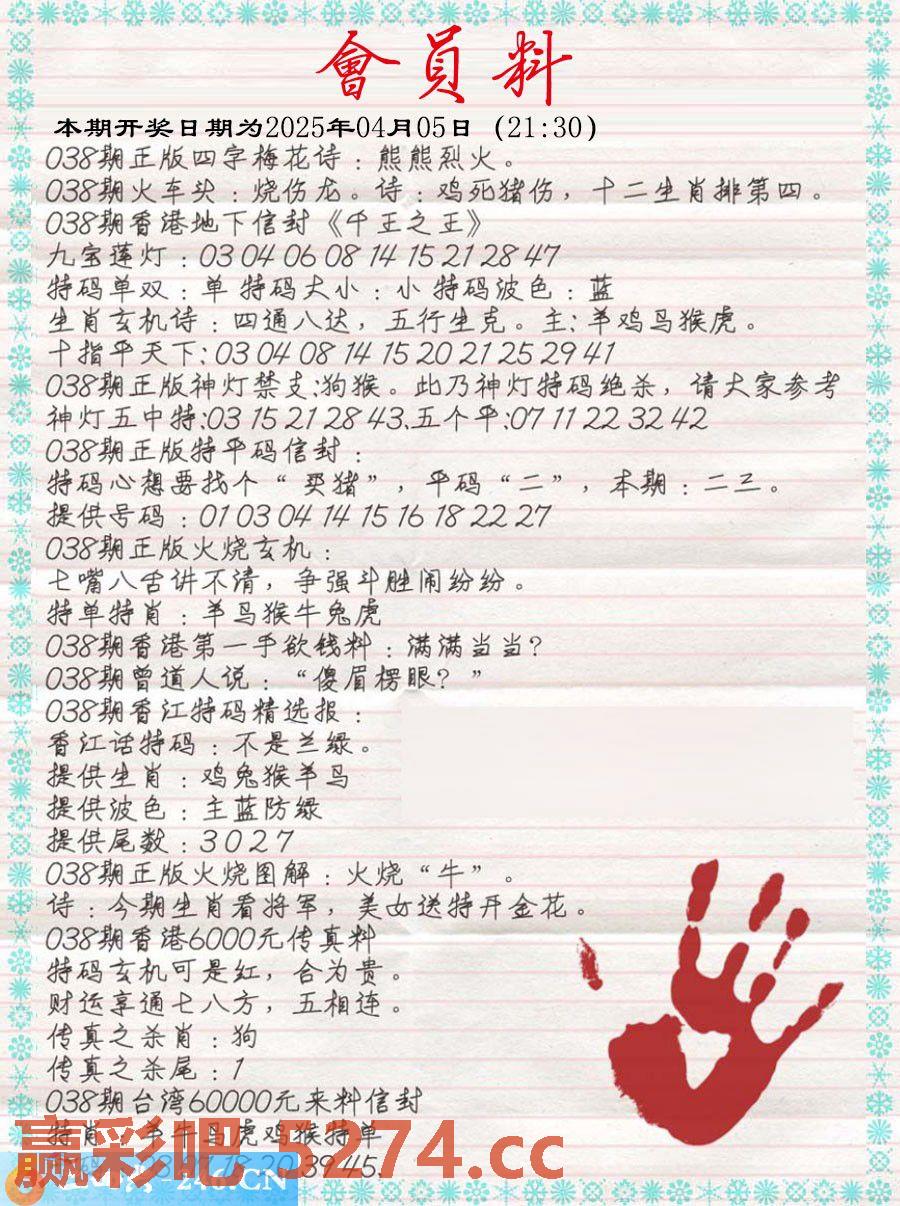 會員料
本期开奖日期为2025年04月05日 (21:30)
038期正版四字梅花诗：熊熊烈火。
038期火车头：烧伤龙。诗：鸡死猪伤，十二生肖排第四。
038期香港地下信封《千王之王》
九宝莲灯：03 04 06 08 14 15 21 28 47
特码单双：单 特码大小：小 特码波色：蓝
生肖玄机诗：四通八达，五行生克。主: 羊鸡马猴虎。
十指平天下: 03 04 08 14 15 20 21 25 29 41
038期正版神灯禁支:狗猴。此乃神灯特码绝杀，请大家参考
神灯五中特:03 15 21 28 43.五个平:07 11 22 32 42
038期正版特平码信封：
特码心想要找个“买猪”，平码“二”，本期：二三。
提供号码：01 03 04 14 15 16 18 22 27
038期正版火烧玄机：
七嘴八舌讲不清，争强斗胜闹纷纷。
特单特肖：羊马猴牛兔虎
038期香港第一手欲钱料：满满当当？
038期曾道人说：“傻眉楞眼？”
038期香江特码精选报：
香江话特码：不是兰绿。
提供生肖：鸡兔猴羊马
提供波色：主蓝防绿
提供尾数：3 0 2 7
038期正版火烧图解：火烧“牛”。
诗：今期生肖看将军，美女送特开金花。
038期香港6000元传真料
特码玄机可是红，合为贵。
财运享通七八方，五相连。
传真之杀肖：狗
传真之杀尾：1
038期台湾60000元来料信封
特肖：羊牛马虎鸡猴特单
18 20 39 45.
赢彩吧.5274.cc
246.CN